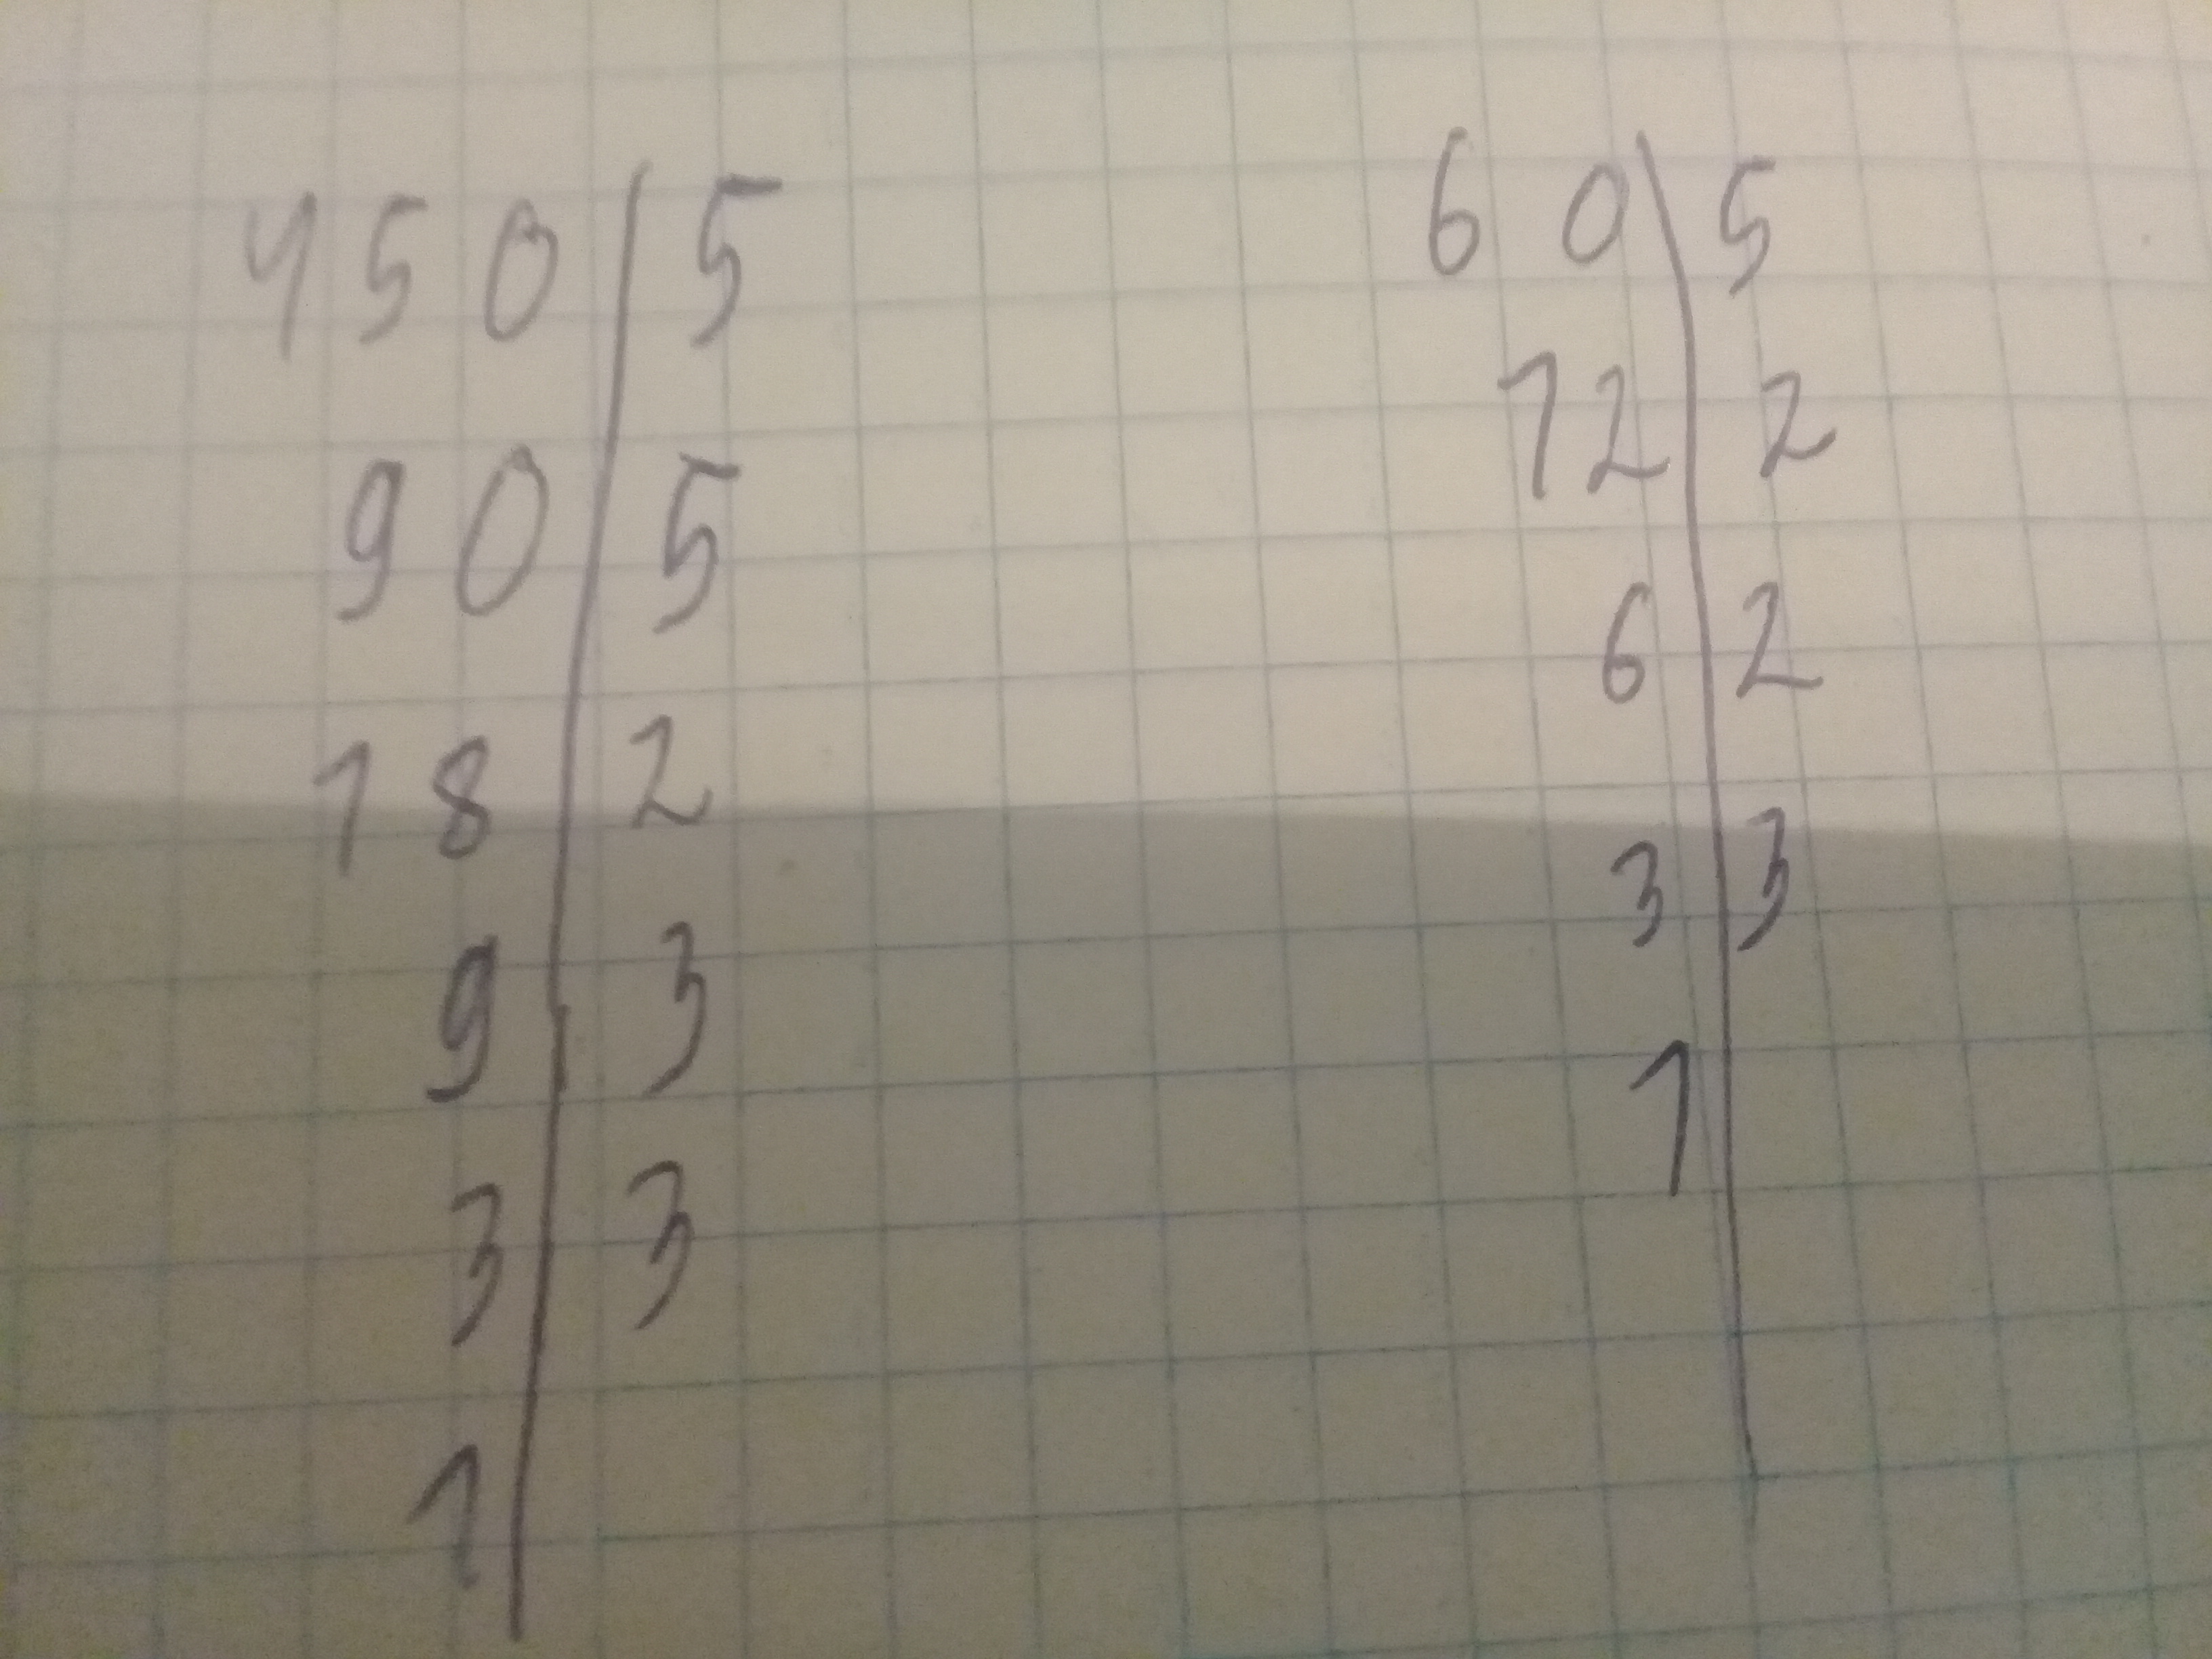 450 | 5
90 | 5
18 | 2
9 | 3
3 | 3
1 |
60 | 5
12 | 2
6 | 2
3 | 3
1 |